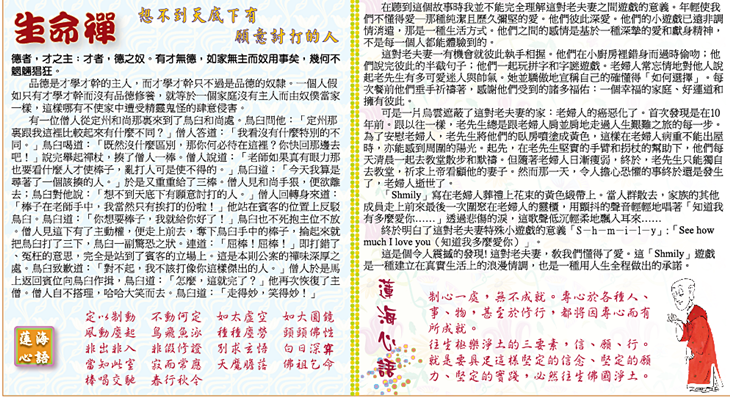 生命禪
想不到天底下有
願意討打的人
德者，才之主：才者，德之奴。有才無德，如家無主而奴用事矣，幾何不
魍魎猖狂。
品德是才學才幹的主人，而才學才幹只不過是品德的奴隸。一個人假
如只有才學才幹而沒有品德修養，就等於一個家庭沒有主人而由奴僕當家
一樣，這樣哪有不使家中遭受精靈鬼怪的肆意侵害。
有一位僧人從定州和尚那裏來到了鳥臼和尚處。鳥臼問他：「定州那
裏跟我這裡比較起來有什麼不同？」僧人答道：「我看沒有什麼特別的不
同。」鳥臼喝道：「既然沒什麼區別，那你何必待在這裡？你快回那邊去
吧！」說完舉起禪杖，揍了僧人一棒。僧人說道：「老師如果真有眼力那
也要看什麼人才使棒子，亂打人可是使不得的。」鳥臼道：「今天我算是
尋著了一個該揍的人。」於是又重重給了三棒。僧人見和尚手狠，便欲離
去；鳥臼對他說：「想不到天底下有願意討打的人。」僧人回轉身來道：
「棒子在老師手中，我當然只有挨打的份啦！」他站在賓客的位置上反駁
鳥臼。鳥臼道：「你想要棒子，我就給你好了！」鳥臼也不死抱主位不放
。僧人見這下有了主動權，便走上前去，奪下鳥臼手中的棒子，掄起來就
把鳥臼打了三下，鳥臼一副驚恐之狀。連道：「屈棒！屈棒！」即打錯了
、冤枉的意思，完全是站到了賓客的立場上。這是本則公案的禪味深厚之
處。鳥臼致歉道：「對不起，我不該打像你這樣傑出的人。」僧人於是馬
上返回賓位向鳥臼作揖，鳥臼道：「怎麼，這就完了？」他再次恢復了主
管。僧人自不搭理，哈哈大笑而去。鳥臼道：「走得妙，笑得妙！」
蓮海
心語
定以制動　不動何定　如太虛空　如大圓鏡
風動塵起　鳥飛魚泳　種種塵勞　頭頭佛性
非出非入　非假修證　別求玄悟　白日深穽
當知此室　寂而常應　天魔膽落　佛祖乞命
棒喝交馳　春行秋令
在聽到這個故事時我並不能完全理解這對老夫妻之間遊戲的意義。年輕使我
們不懂得愛一那種純潔且歷久彌堅的愛。他們彼此深愛。他們的小遊戲已遠非調
情清遣，那是一種生活方式。他們之間的感情是基於一種深摯的愛和獻身精神，
不是每一個人都能體驗到的。
這對老夫妻一有機會就彼此執手相握。他們在小廚房裡錯身而過時偷吻；他
們說完彼此的半截句子；他們一起玩拼字和字謎遊戲。老婦人常忘情地對他人說
起老先生有多可愛迷人與帥氣。她並驕傲地宣稱自己的確懂得「如何選擇」。每
次餐前他們垂手祈禱著，感謝他們受到的諸多福祐：一個幸福的家庭、好運道和
擁有彼此。
可是一片烏雲遮蔽了這對老夫妻的家：老婦人的癌惡化了。首次發現是在10
年前。跟以往一樣，老先生總是跟老婦人肩並肩地走過人生艱難之旅的每一步。
為了安慰老婦人，老先生將他們的臥房噴塗成黃色，這樣在老婦人病重不能出屋
時，亦能感到周圍的陽光。起先，在老先生堅實的手臂和拐杖的幫助下，他們每
天清晨一起去教堂散步和默禱。但隨著老婦人日漸瘦弱，終於，老先生只能獨自
去教堂，祈求上帝看顧他的妻子。然而那一天，令人擔心恐懼的事終於還是發生
了，老婦人逝世了。
「Shmily」寫在老婦人葬禮上花束的黃色緞帶上。當人群散去，家族的其他
成員走上前來最後一次團聚在老婦人的靈櫃，用顫抖的聲音輕輕地唱著「知道我
有多麼愛你……」透過悲傷的淚，這歌聲低沉輕柔地飄入耳來……
終於明白了這對老夫妻特殊小遊戲的意義「S－h－m－i－l－y」：「See how
much I love you（知道我多麼愛你）」。
這是個令人震撼的發現！這對老夫妻，教我們懂得了愛。這「Shmily」遊戲
是一種建立在真實生活上的浪漫情調，也是一種用人生全程做出的承諾。
蓮海心語
制心一處，無不成就。專心於各種人、
事、物，甚至於修行，都將因專心而有
所成就。
往生極樂淨土的三要素，信、願、行。
就是要具足這樣堅定的信念、堅定的願
力、堅定的實踐，必然往生佛國淨土。